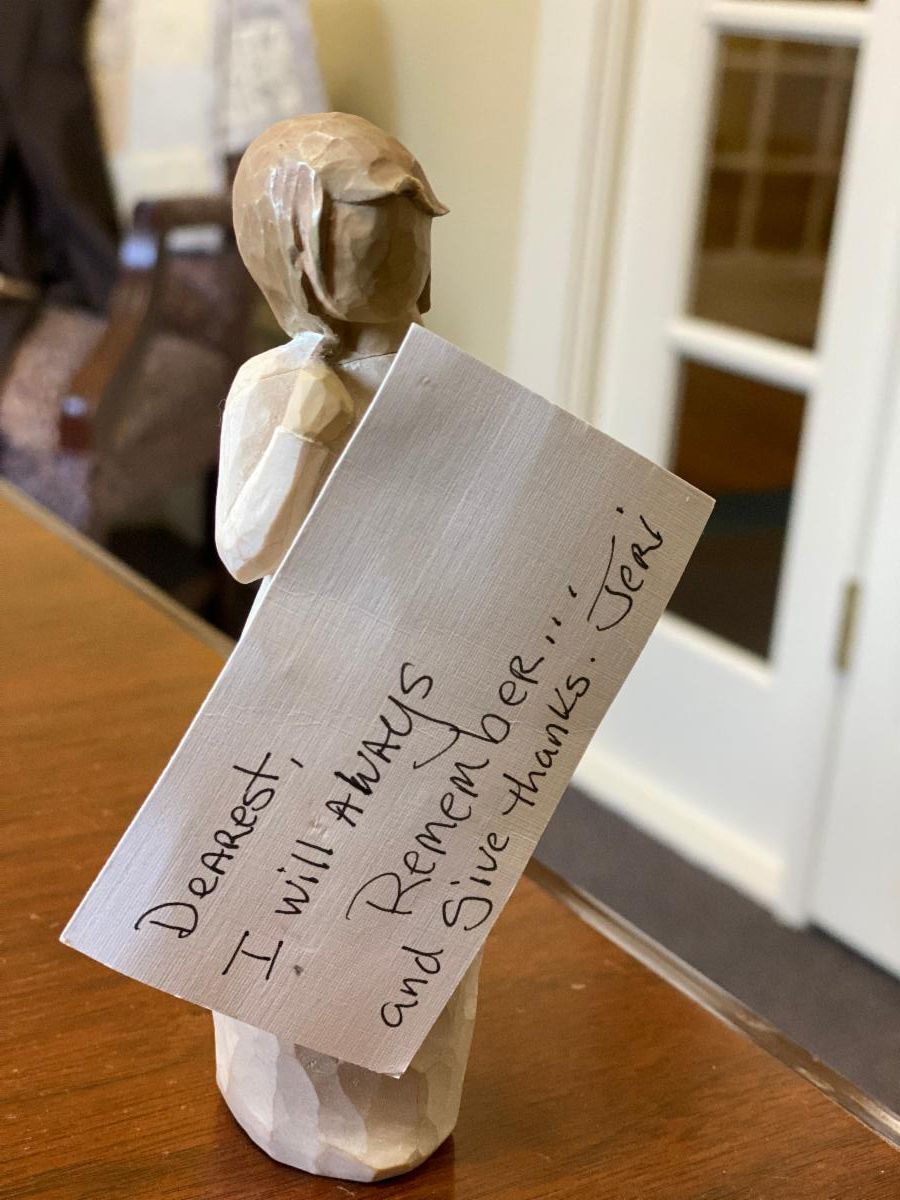 Dearest,
I will Aways
Remember...
and give thanks. Jeri